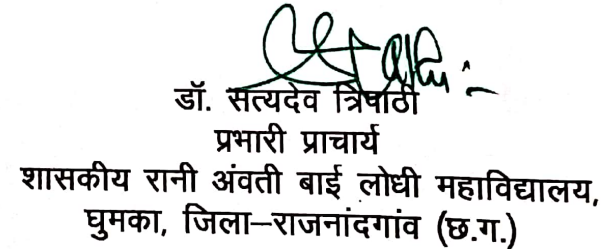 डॉ. सत्यदेव त्रिपाठी
प्रभारी प्राचार्य
शासकीय रानी अंवती बाई लोधी महाविद्यालय,
घुमका, जिला–राजनांदगांव (छ.ग.)